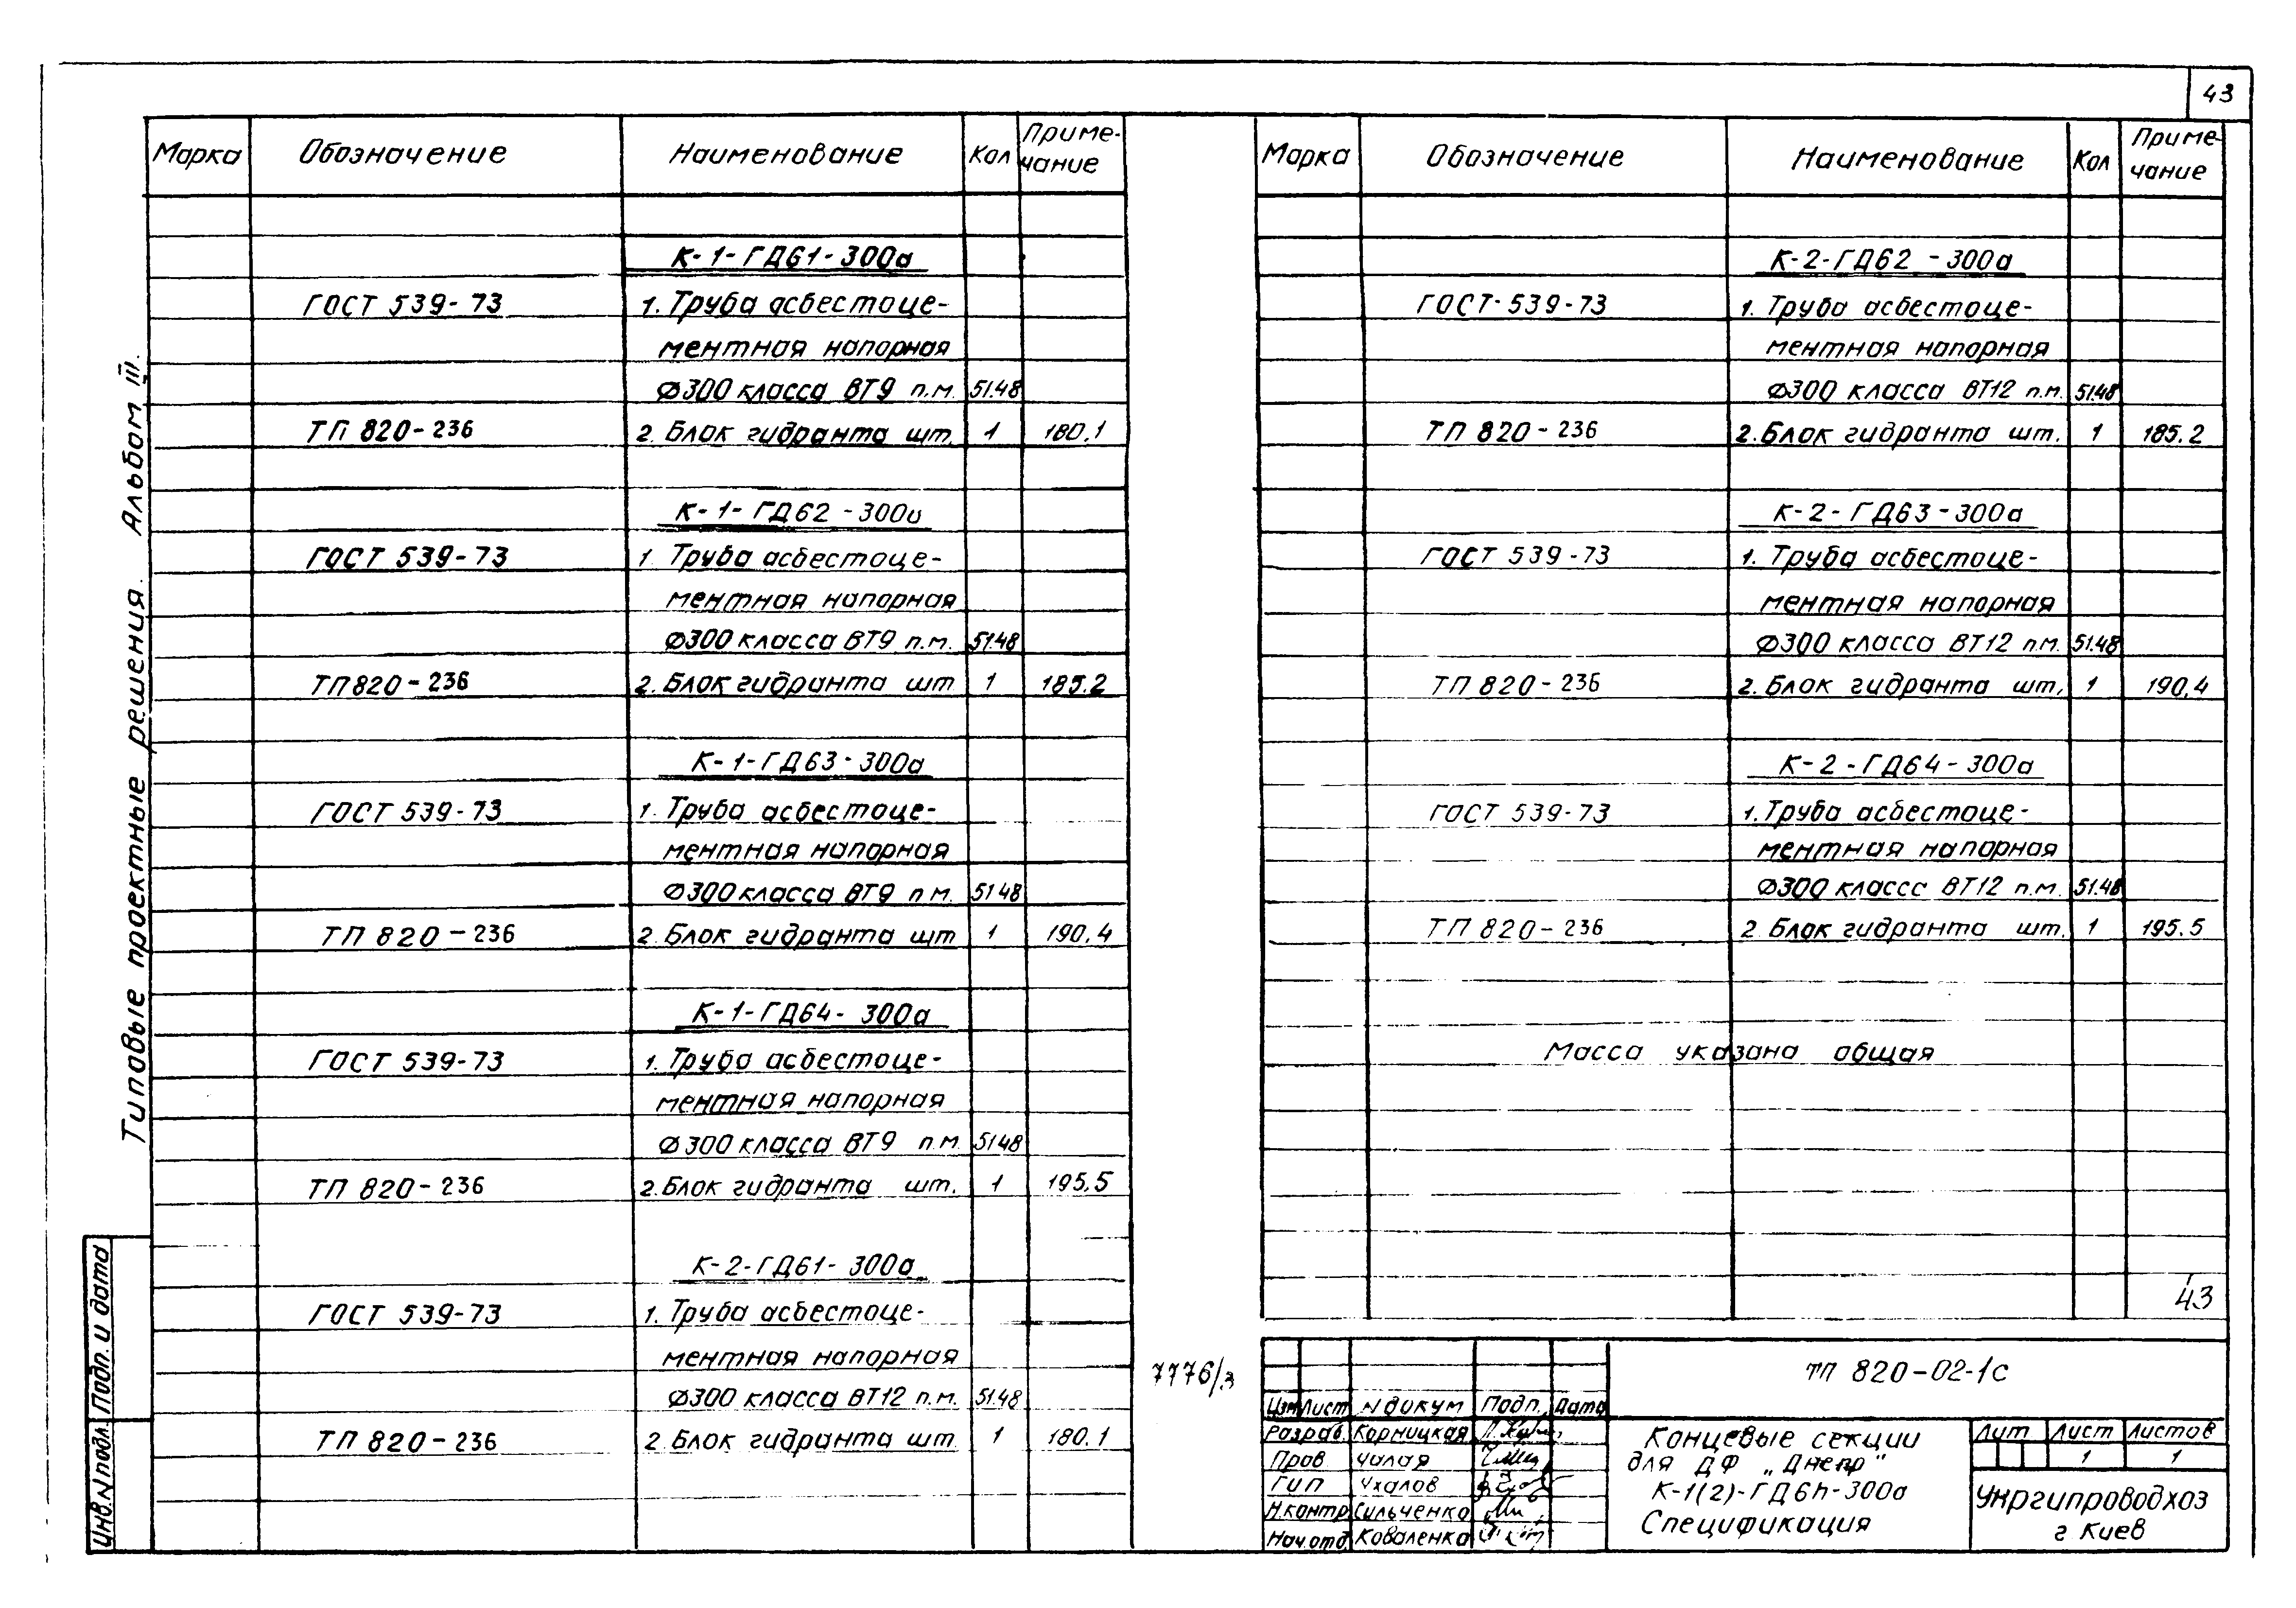 43
Марка Обозначение Наименование Кол Приме-
чание
К-1-ГД61-300а
ГОСТ 539-73 1. Труба асбестоце-
ментная напорная
Ф300 класса ВТ9 п.м. 51.48
ТП 820-236 2. Блок гидранта шт. 1 180.1
К-1-ГД62-300а
ГОСТ 539-73 1. Труба асбестоце-
ментная напорная
Ф300 класса ВТ9 п.м. 51.48
ТП 820-236 2. Блок гидранта шт 1 185.2
К-1-ГД63-300а
ГОСТ 539-73 1. Труба асбестоце-
ментная напорная
Ф300 класса ВТ9 п м. 51 48
ТП 820-236 2 Блок гидранта шт 1 190.4
К-1-ГД64-300а
ГОСТ 539-73 1. Труба асбестоце-
ментная напорная
Ф300 класса ВТ9 п.м. 51 48
ТП 820-236 2. Блок гидранта шт. 1 195.5
К-2-ГД61-300а
ГОСТ 539-73 1. Труба асбестоце-
ментная напорная
Ф300 класса ВТ12 п.м. 51.48
ТП 820-236 2 Блок гидранта шт. 1 180.1
Марка Обозначение Наименование Кол Приме-
чание
К-2-ГД62-300а
ГОСТ 539-73 1. Труба асбестоце-
ментная напорная
Ф300 класса ВТ12 п.м. 51.48
ТП 820-236 2. Блок гидранта шт. 1 185.2
К-2-ГД63-300а
ГОСТ 539-73 1. Труба асбестоце-
ментная напорная
Ф300 класса ВТ12 п.м. 51.48
ТП 820-236 2. Блок гидранта шт. 1 190.4
К-2-ГД64-300а
ГОСТ 539-73 1. Труба асбестоце-
ментная напорная
Ф300 класса ВТ12 п.м. 51.48
ТП 820-236 2 Блок гидранта шт. 1 195.5
Масса указана общая
43
7776/3
ТП 820-02-1с
Изм Лист N докум Подп. Дата
Разраб. Корницкая
Пров Чалая
Гип Ухалов
Н.контр Сильченко
Нач.отд Коваленко
Концевые секции
для ДФ „Днепр"
К-1(2)-ГД6h-300а
Спецификация
Лит Лист Листов
1 1
Укргипроводхоз
г Киев
Типовые проектные решения. Альбом III.
Подп. и дата
Инв.N подл.